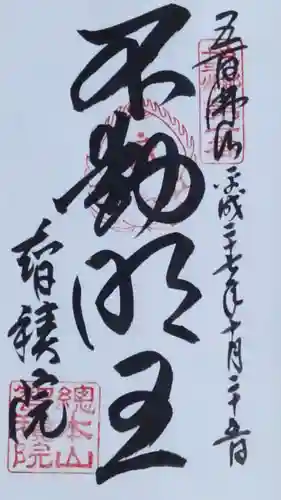 五百佛山 平成二十七年十月二十五日
不動明王
智積院
總本山
智積院